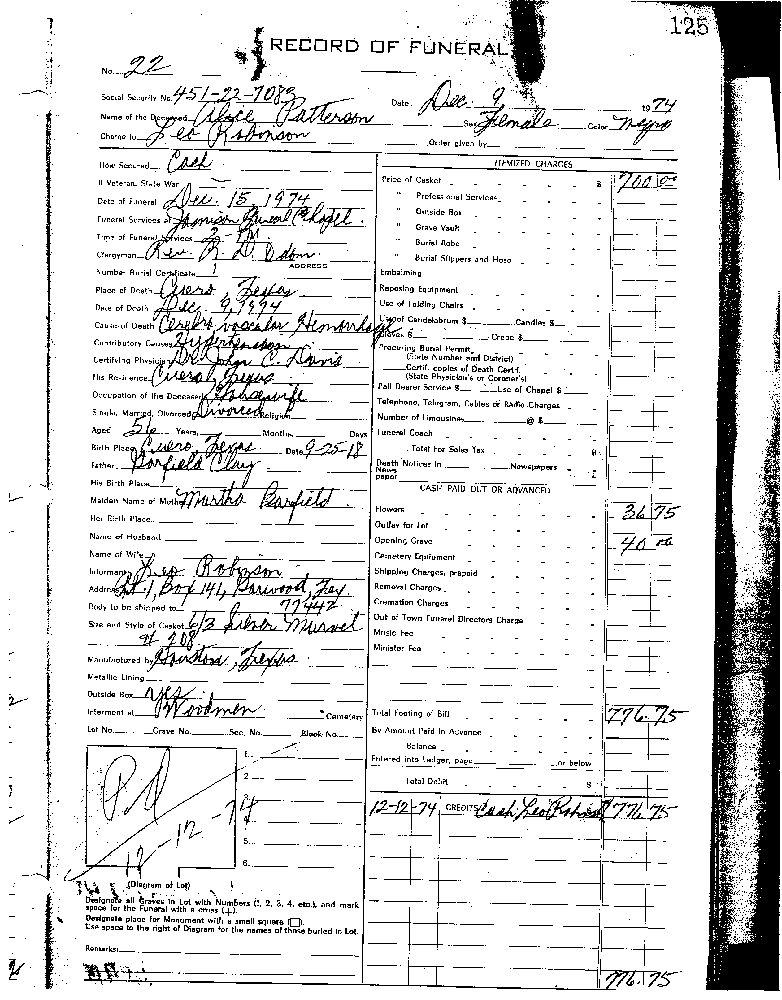 125
RECORD OF FUNERAL
No. 22
Social Security No. 451-22-7083
Date Dec 9, 1974
Name of the Deceased Alice Patterson
Sex Female Color Negro
Charge to Leo Robinson
Order given by
How Secured Cash
If Veteran, State War
Date of Funeral Dec. 15, 1974
Funeral Services at Jamison Funeral Chapel.
Time of Funeral Services 2 PM
Clergyman Rev. R. D. Odom
ADDRESS
Number Burial Certificate 1
Place of Death Cuero, Texas
Date of Death Dec 9, 1974
Cause of Death Cerebro vascular Hemorrhage
Contributory Causes Hypertension
Certifying Physician Dr. John C. Davis
His Residence Cuero, Texas
Occupation of the Deceased Housewife
Single, Married, Divorced Divorced Religion
Aged 56 Years, Months, Days
Birth Place Cuero, Texas Date 9-25-18
Father Barfield Clay
His Birth Place
Maiden Name of Mother Martha Barfield
Her Birth Place
Name of Husband
Name of Wife
Informant Leo Robinson
Address Rt. 1, Box 141, Garwood, Tex
77442
Body to be shipped to
Size and Style of Casket 6/3 Silver
# 208
Manufactured by Houston, Texas
Metallic Lining
Outside Box Yes
Interment at Woodmen Cemetery
Lot No. Grave No. Sec. No. Block No.
Pd
12-12-74
1.
2
3.
5.
6.
(Diagram of Lot)
Designate all Graves in Lot with Numbers (1, 2, 3, 4, etc.), and mark
space for the Funeral with a cross (+).
Designate place for Monument with a small square (□).
Use space to the right of Diagram for the names of those buried in Lot.
Remarks:
ITEMIZED CHARGES
Price of Casket $ 700 00
" Professional Services
" Outside Box
" Grave Vault
" Burial Robe
" Burial Slippers and Hose
Embalming
Reposing Equipment
Use of Folding Chairs
Use of Candelabrum $ Candles $
Gloves $ Crepe $
Procuring Burial Permit
(State Number and District)
Certif. copies of Death Certif.
(State Physician's or Coroner's)
Pall Bearer Service $ Use of Chapel $
Telephone, Telegram, Cables or Radio Charges
Number of Limousines @ $
Funeral Coach
Total For Sales Tax
Death Notices in Newspapers
News
paper
CASH PAID OUT OR ADVANCED
Flowers 36 75
Outlay for Lot
Opening Grave 40 00
Cemetery Equipment
Shipping Charges, prepaid
Removal Charges
Cremation Charges
Out of Town Funeral Directors Charge
Music Fee
Minister Fee
Total Footing of Bill 776.75
By Amount Paid In Advance
Balance
Entered into Ledger, page or below
Total Debit $
12-12-74 CREDITS Cash Leo 776 75
776.75